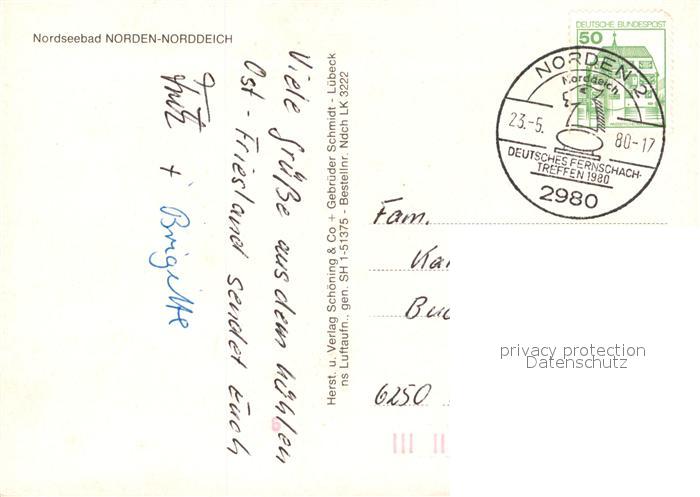 Nordseebad NORDEN-NORDDEICH
Viele Grüße aus dem kühlen
Ost-Friesland sendet Euch
Fritz + Brigitte
Herst. u. Verlag Schöning & Co + Gebrüder Schmidt - Lübeck
ns Luftaufn., gen. SH 1-51375 - Bestellnr. Ndch LK 3222
DEUTSCHE BUNDESPOST
50
NORDEN 2
Norddeich
23.-5. 80-17
DEUTSCHES FERNSCHACH-
TREFFEN 1980
2980
Fam.
6250
privacy protection
Datenschutz